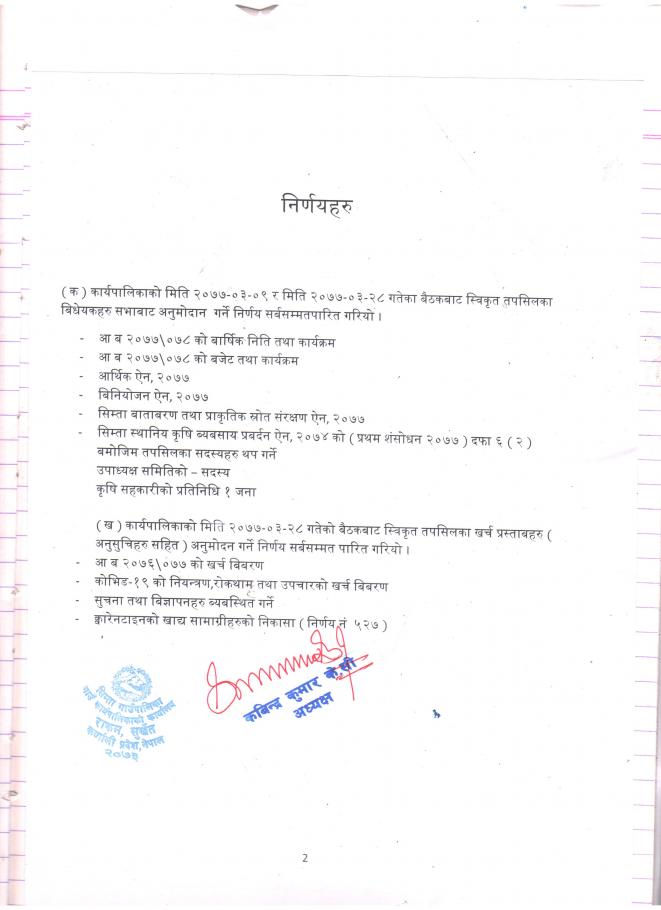 निर्णयहरु
( क ) कार्यपालिकाको मिति २०७७-०३-०९ र मिति २०७७-०३-२८ गतेका बैठकबाट स्विकृत तपसिलका
बिधेयकहरु सभाबाट अनुमोदान गर्ने निर्णय सर्बसम्मतपारित गरियो ।
- आ ब २०७७\०७८ को बार्षिक निति तथा कार्यक्रम
- आ ब २०७७\०७८ को बजेट तथा कार्यक्रम
- आर्थिक ऐन, २०७७
- बिनियोजन ऐन, २०७७
- सिम्ता बाताबरण तथा प्राकृतिक स्रोत संरक्षण ऐन, २०७७
- सिम्ता स्थानिय कृषि ब्यबसाय प्रबर्दन ऐन, २०७४ को ( प्रथम शंसोधन २०७७ ) दफा ६ ( २ )
बमोजिम तपसिलका सदस्यहरु थप गर्ने
उपाध्यक्ष समितिको – सदस्य
कृषि सहकारीको प्रतिनिधि १ जना
( ख ) कार्यपालिकाको मिति २०७७-०३-२८ गतेको बैठकबाट स्विकृत तपसिलका खर्च प्रस्ताबहरु (
अनुसुचिहरु सहित ) अनुमोदन गर्ने निर्णय सर्बसम्मत पारित गरियो ।
- आ ब २०७६\०७७ को खर्च बिबरण
- कोभिड-१९ को नियन्त्रण,रोकथाम तथा उपचारको खर्च बिबरण
- सुचना तथा बिज्ञापनहरु ब्यबस्थित गर्ने
- क्वारेनटाइनको खाद्य सामाग्रीहरुको निकासा ( निर्णय नं ५२७ )
सिम्ता गाउँपालिका
गाउँ कार्यपालिकाको कार्यालय
राकम, सुर्खेत
कर्णाली प्रदेश, नेपाल
२०७३
कबिन्द्र कुमार के.सी
अध्यक्ष
2